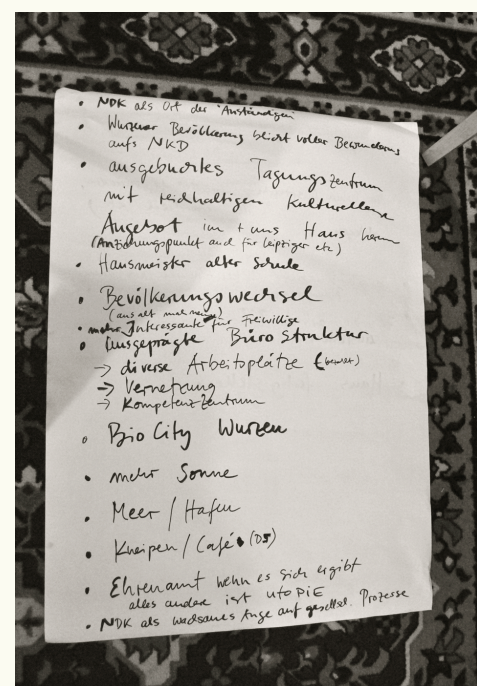 • NDK als Ort der "Anständigen"
• Wurzener Bevölkerung blickt voller Bewunderung
aufs NKD
• ausgebuchtes Tagungszentrum
mit reichhaltigen kulturellem
Angebot im + ums Haus herum
(Anziehungspunkt auch für Leipziger etc)
• Hausmeister alter Schule
• Bevölkerungswechsel
(aus alt mach neu)
• mehr Interessante für Freiwillige
• ausgeprägte Büro Struktur
→ diverse Arbeitsplätze
→ Vernetzung
→ Kompetenzzentrum
• Bio City Wurzen
• mehr Sonne
• Meer / Hafen
• Kneipen / Café (D5)
• Ehrenamt wenn es sich ergibt
alles andere ist utopie
• NDK als wachsames Auge auf gesellsch. Prozesse